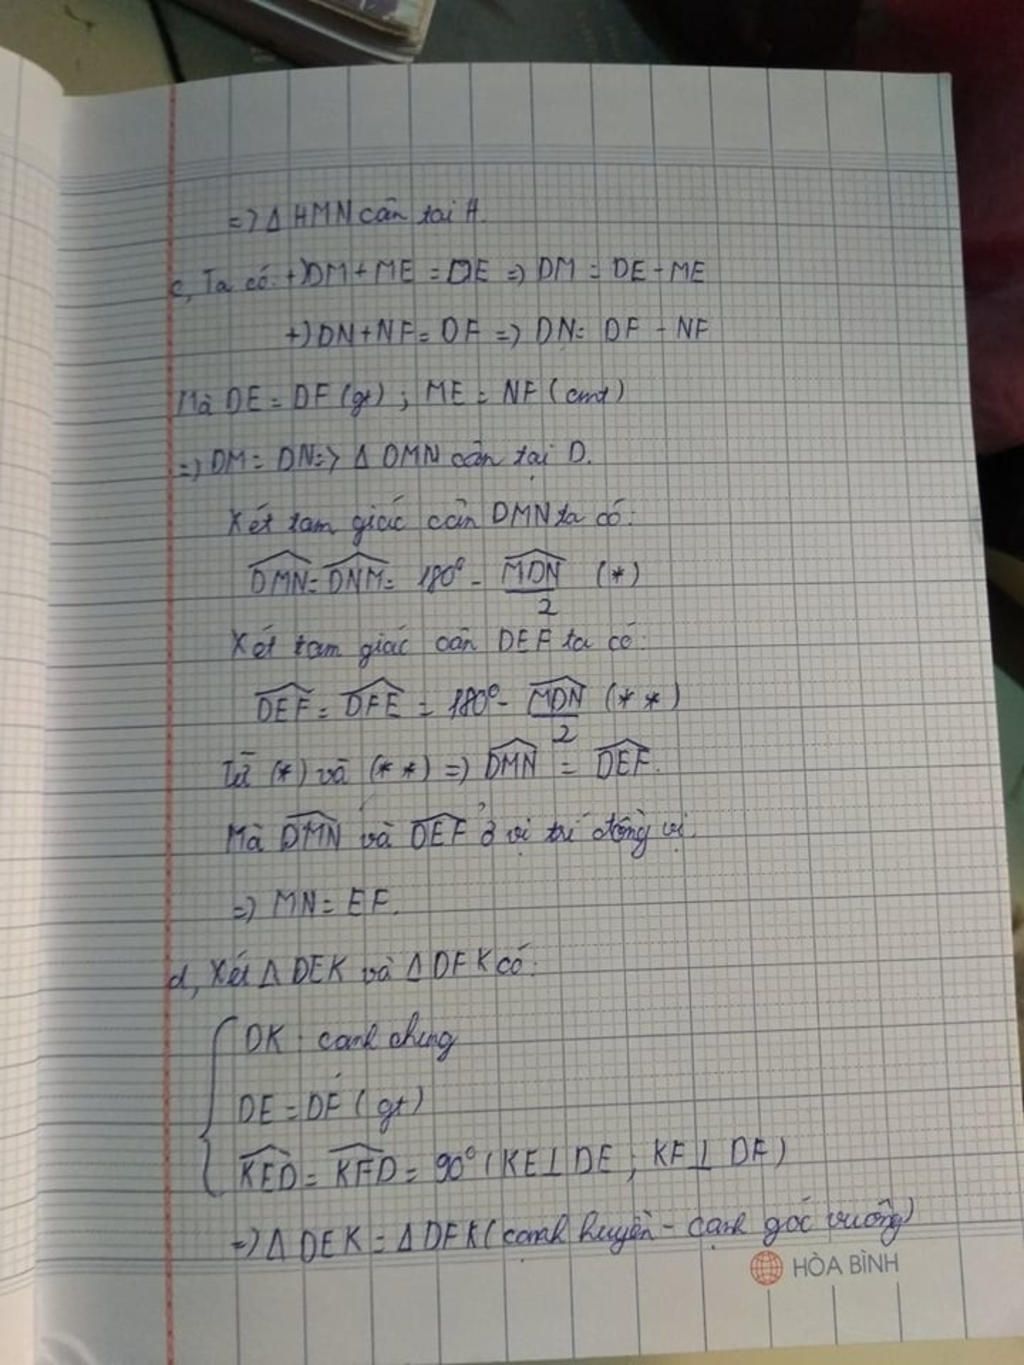 => Δ HMN cân tại H.
c, Ta có: +) DM + ME = DE => DM = DE - ME
+) DN + NF = DF => DN = DF - NF
Mà DE = DF (gt) ; ME = NF (cmt)
=> DM = DN => Δ DMN cân tại D.
Xét tam giác cân DMN ta có:
\widehat{DMN} = \widehat{DNM} = 180° - \frac{\widehat{MDN}}{2} (*)
Xét tam giác cân DEF ta có:
\widehat{DEF} = \widehat{DFE} = 180° - \frac{\widehat{MDN}}{2} (**)
Từ (*) và (**) => \widehat{DMN} = \widehat{DEF}.
Mà \widehat{DMN} và \widehat{DEF} ở vị trí đồng vị
=> MN = EF.
d, Xét Δ DEK và Δ DFK có:
DK : cạnh chung
DE = DF (gt)
\widehat{KED} = \widehat{KFD} = 90° (KE ⊥ DE ; KF ⊥ DF)
=> Δ DEK = Δ DFK (cạnh huyền - cạnh góc vuông)
HÒA BÌNH